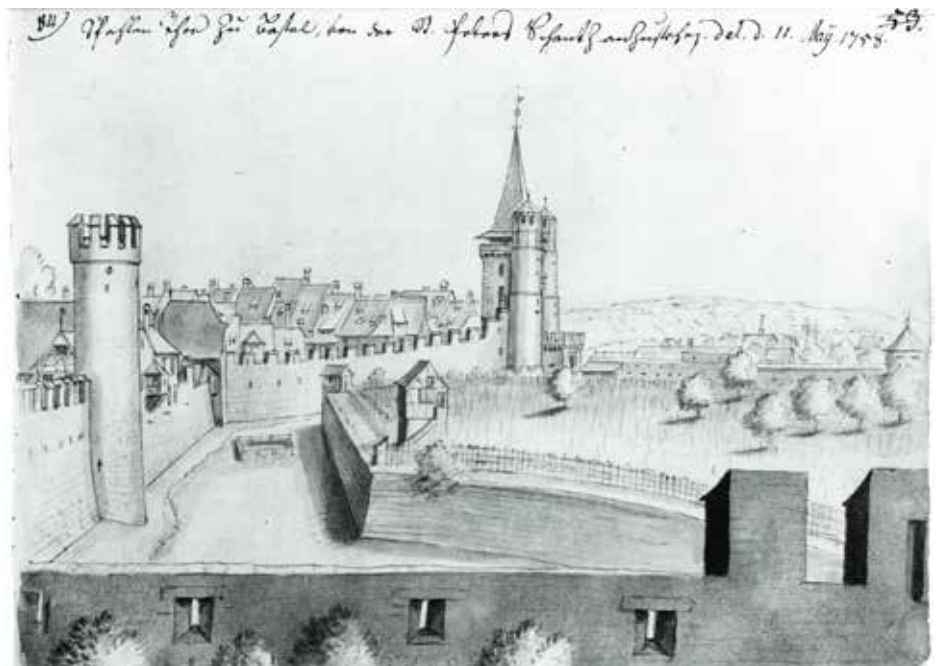 84) Spahlen Thor zu Basel, von der St. Peters Schantz anzusehen. del. d. 11. May. 1758.
53.